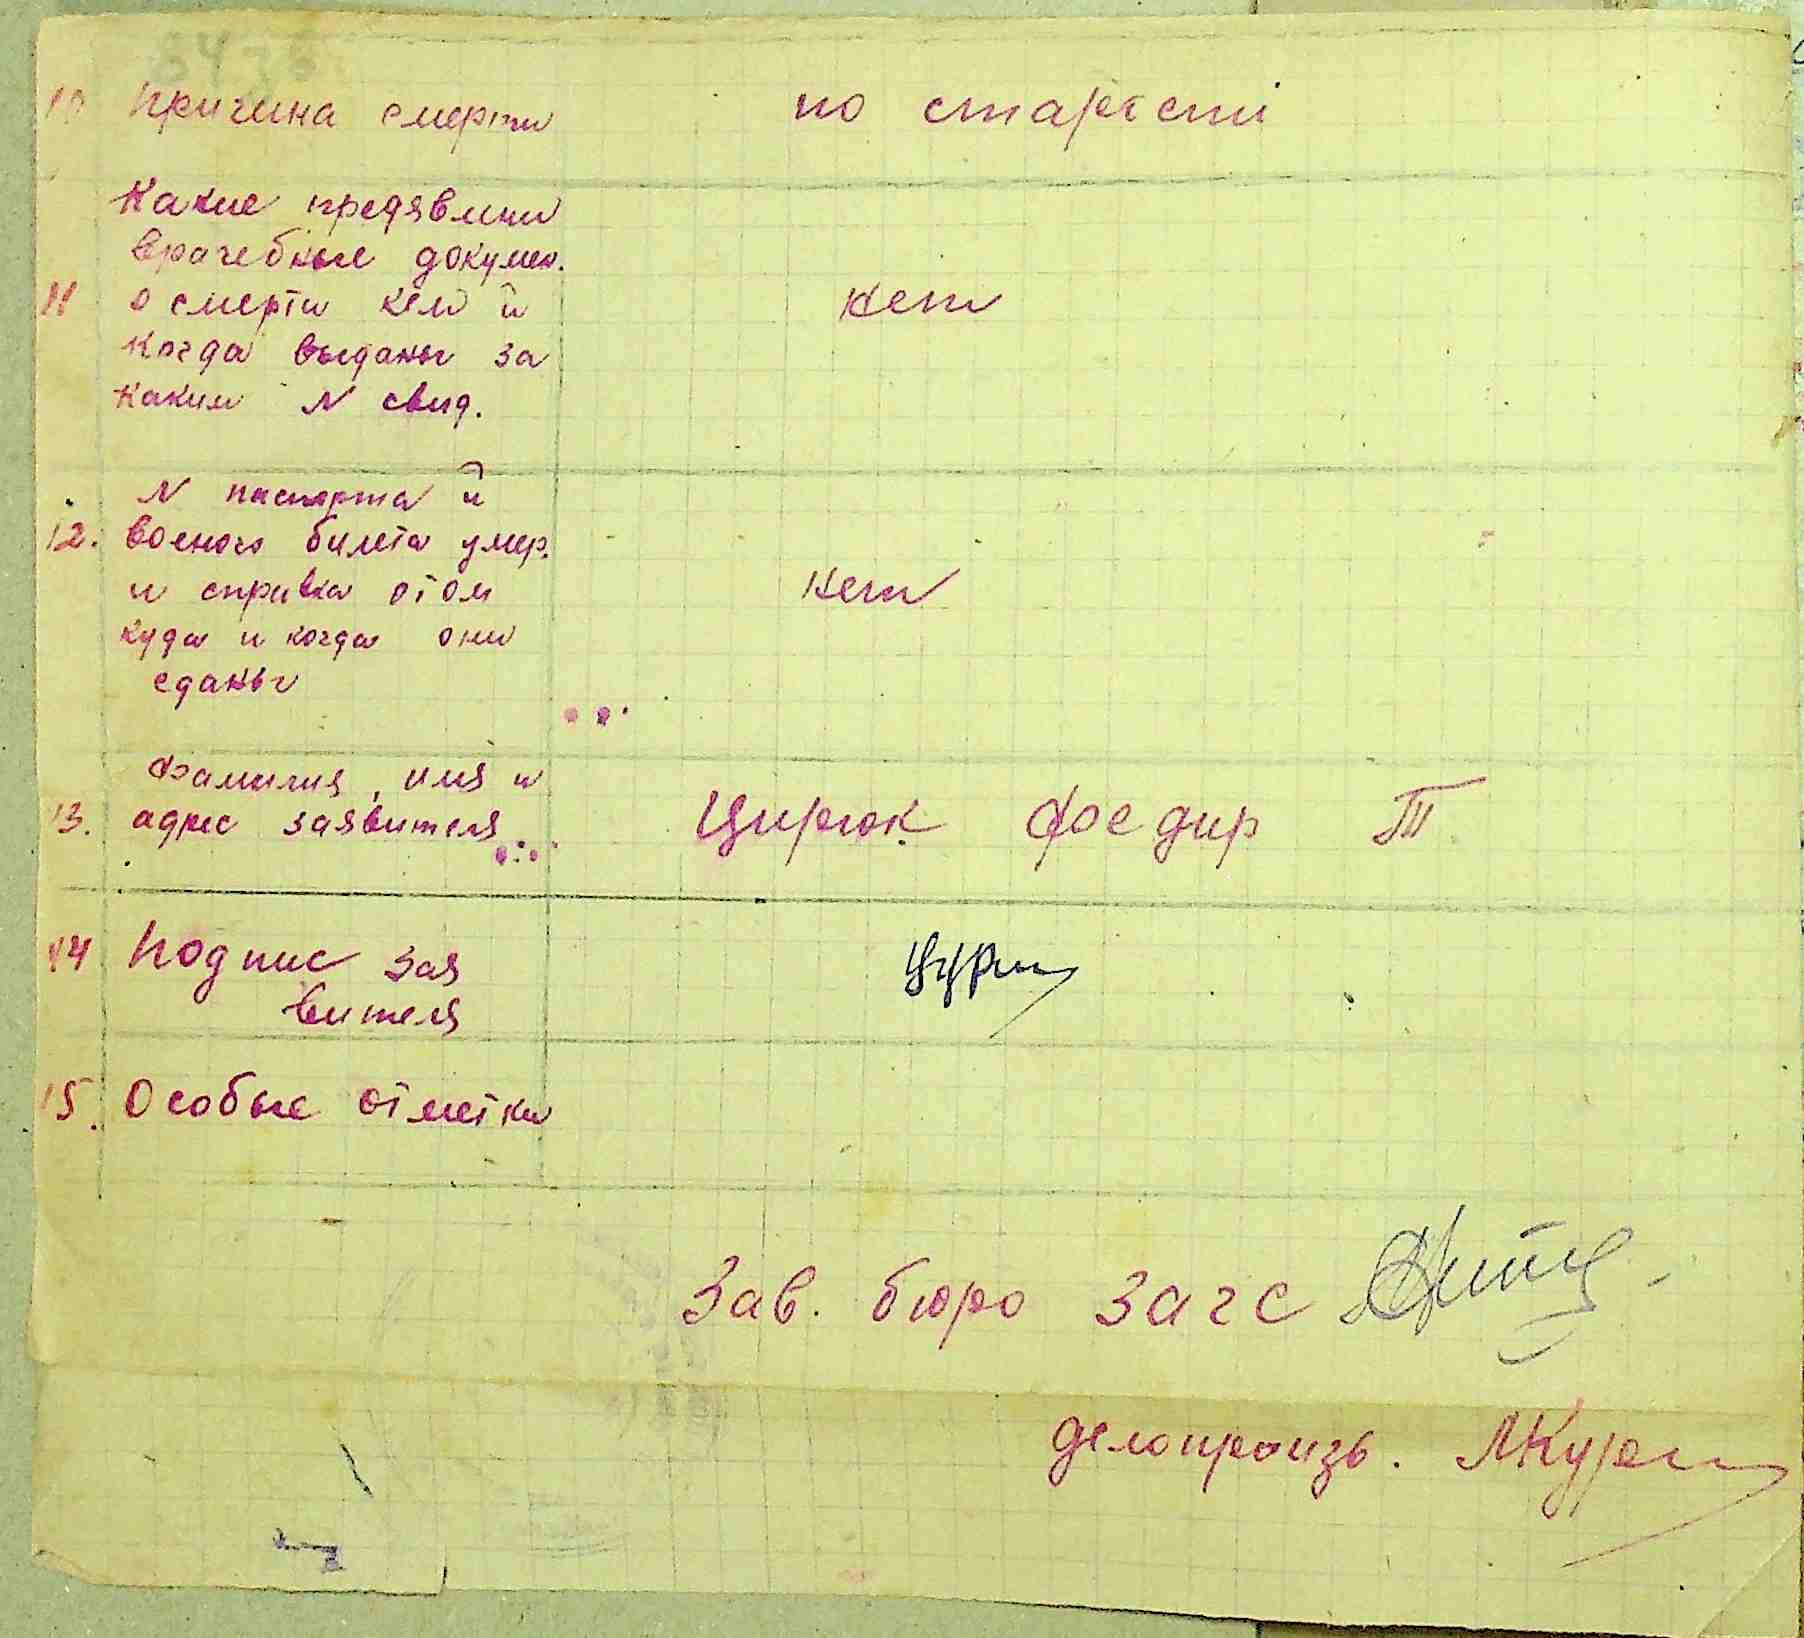 10 Причина смерти по старєсті
Какие предявлини
врачебные докумен.
11 о смерти кем и нет
когда выданы за
каким N свид.
N паспорта и
12. военого билета умер.
и справка отом нет
куда и когда они
сданы
Фамилия, имя и
13. адрес заявителя Цирюк Федир Т
14 Подпис зая
вителя
15. Особые отметки
Зав. бюро загс
делопроизв.